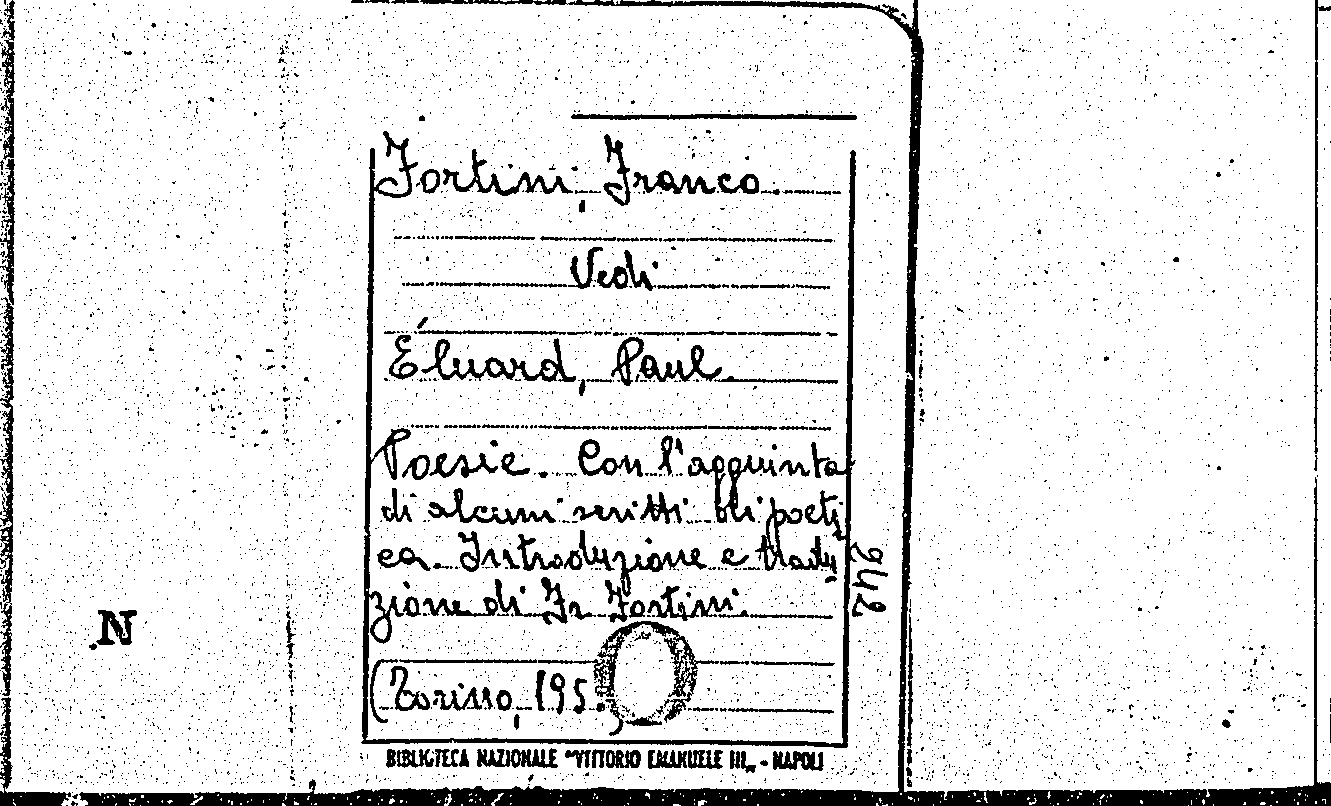 Fortini, Franco.
Vedi
Éluard, Paul.
Poesie. Con l'aggiunta
di alcuni scritti di poeti
ca. Introduzione e tradu
zione di Fr. Fortini.
(Torino, 195
242
N
BIBLIOTECA NAZIONALE "VITTORIO EMANUELE III„ - NAPOLI